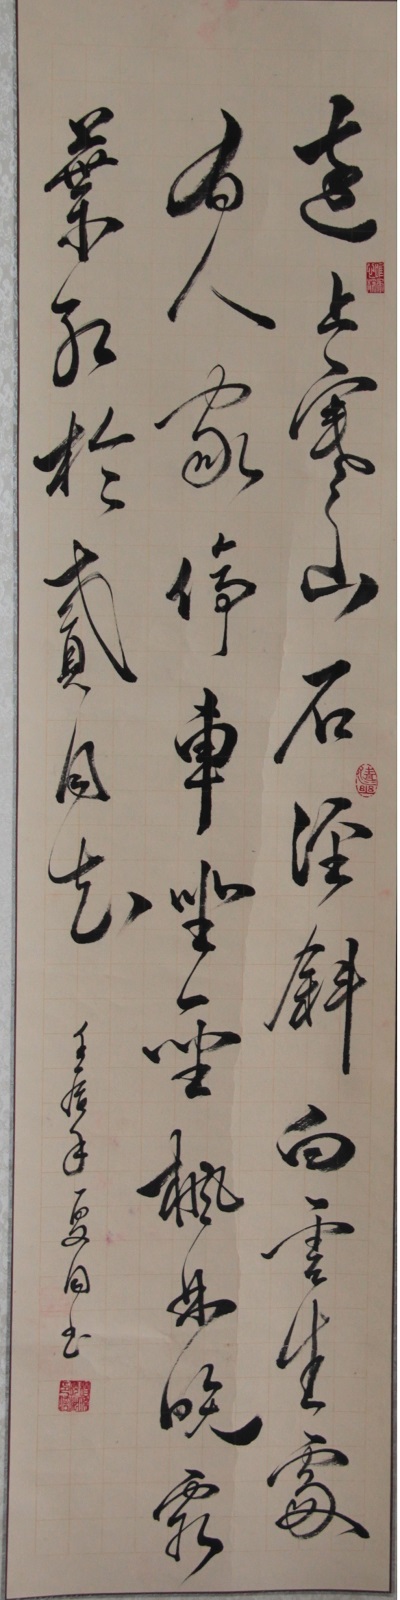 遠上寒山石径斜白雲生處
有人家停車坐愛楓林晚霜
葉红於貳月花
壬辰年夏月书